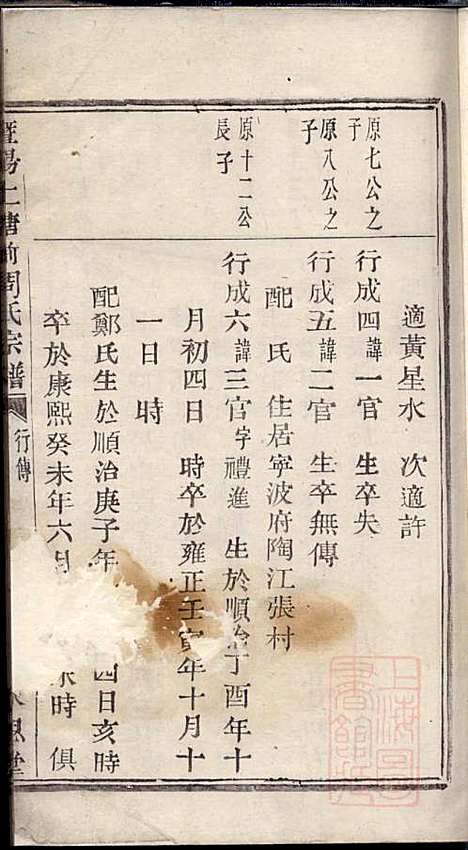 適黃星水　次適許
原七公之子
行成四諱一官　生卒失
原八公之子
行成五諱二官　生卒無傳
配　氏　住居寧波府陶江張村
原十二公長子
行成六諱三官字禮進　生於順治丁酉年十
月初四日　時卒於雍正壬寅年十月十
一日　時
配鄭氏生於順治庚子年　四日亥時
卒於康熙癸未年六月　時　俱
暨陽上塘前周氏宗譜　行傳　堂
上海圖書館藏